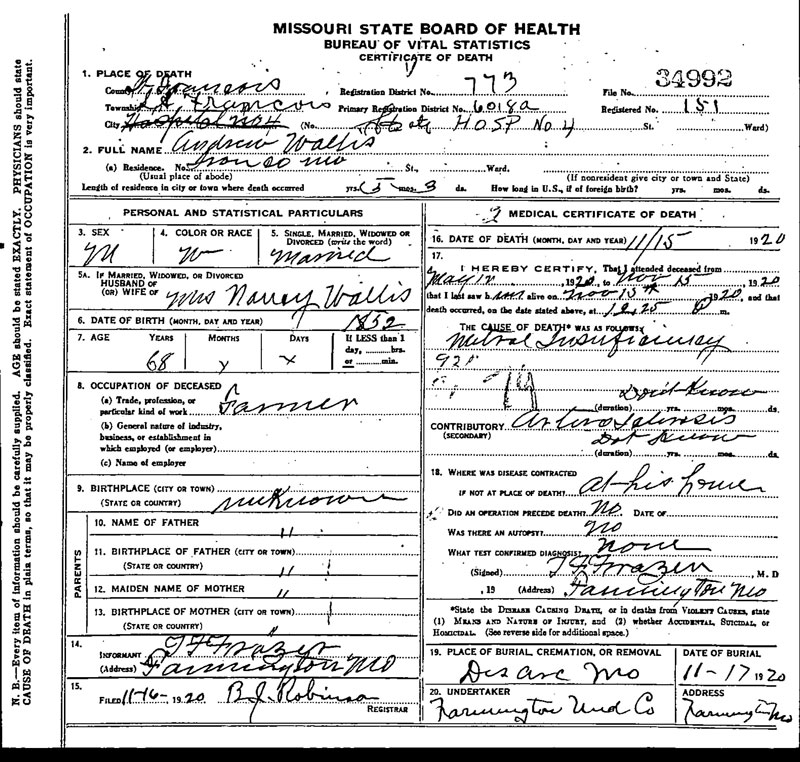 MISSOURI STATE BOARD OF HEALTH
BUREAU OF VITAL STATISTICS
CERTIFICATE OF DEATH
1. PLACE OF DEATH
County St Francois Registration District No. 773 File No. 34992
Township St. Francois Primary Registration District No. 6018a Registered No. 151
City Hospital No 4 (No. State HOSP No 4 St. Ward)
2. FULL NAME Andrew Wallis
(a) Residence. No. Iron Co Mo St., Ward.
(Usual place of abode) (If nonresident give city or town and State)
Length of residence in city or town where death occurred yrs. 5 mos. 3 ds. How long in U.S., if of foreign birth? yrs. mos. ds.
PERSONAL AND STATISTICAL PARTICULARS
3. SEX M
4. COLOR OR RACE W
5. SINGLE, MARRIED, WIDOWED OR DIVORCED (write the word) Married
5A. IF MARRIED, WIDOWED, OR DIVORCED
HUSBAND OF
(OR) WIFE OF Mrs Nancy Wallis
6. DATE OF BIRTH (MONTH, DAY AND YEAR) 1852
7. AGE YEARS MONTHS DAYS If LESS than 1 day, ....hrs. or ....min.
68
8. OCCUPATION OF DECEASED
(a) Trade, profession, or
particular kind of work Farmer
(b) General nature of industry,
business, or establishment in
which employed (or employer)
(c) Name of employer
9. BIRTHPLACE (CITY OR TOWN)
(STATE OR COUNTRY) unknown
PARENTS
10. NAME OF FATHER "
11. BIRTHPLACE OF FATHER (CITY OR TOWN)
(STATE OR COUNTRY) "
12. MAIDEN NAME OF MOTHER "
13. BIRTHPLACE OF MOTHER (CITY OR TOWN)
(STATE OR COUNTRY) "
14.
INFORMANT T F Frazer
(Address) Farmington Mo
15.
FILED 11-16-1920 B. J. Robinson
REGISTRAR
MEDICAL CERTIFICATE OF DEATH
16. DATE OF DEATH (MONTH, DAY AND YEAR) 11/15 1920
17.
I HEREBY CERTIFY, That I attended deceased from
May 12, 1920, to Nov 15, 1920
that I last saw him alive on Nov 15th, 1920, and that
death occurred, on the date stated above, at 12.25 P m.
THE CAUSE OF DEATH* WAS AS FOLLOWS:
Mitral Insuficiency
92
Don't Know
(duration) yrs. mos. ds.
CONTRIBUTORY Arterio Sclerosis
(SECONDARY) Dont Know
(duration) yrs. mos. ds.
18. WHERE WAS DISEASE CONTRACTED
IF NOT AT PLACE OF DEATH? At his home
DID AN OPERATION PRECEDE DEATH? No DATE OF
WAS THERE AN AUTOPSY? No
WHAT TEST CONFIRMED DIAGNOSIS? None
(Signed) T F Frazer, M. D
, 19 (Address) Farmington Mo
*State the DISEASE CAUSING DEATH, or in deaths from VIOLENT CAUSES, state
(1) MEANS AND NATURE OF INJURY, and (2) whether ACCIDENTAL, SUICIDAL, or
HOMICIDAL. (See reverse side for additional space.)
19. PLACE OF BURIAL, CREMATION, OR REMOVAL DATE OF BURIAL
Des Arc Mo 11-17 1920
20. UNDERTAKER ADDRESS
Farmington Und Co Farmington Mo
N. B.—Every item of information should be carefully supplied. AGE should be stated EXACTLY. PHYSICIANS should state
CAUSE OF DEATH in plain terms, so that it may be properly classified. Exact statement of OCCUPATION is very important.